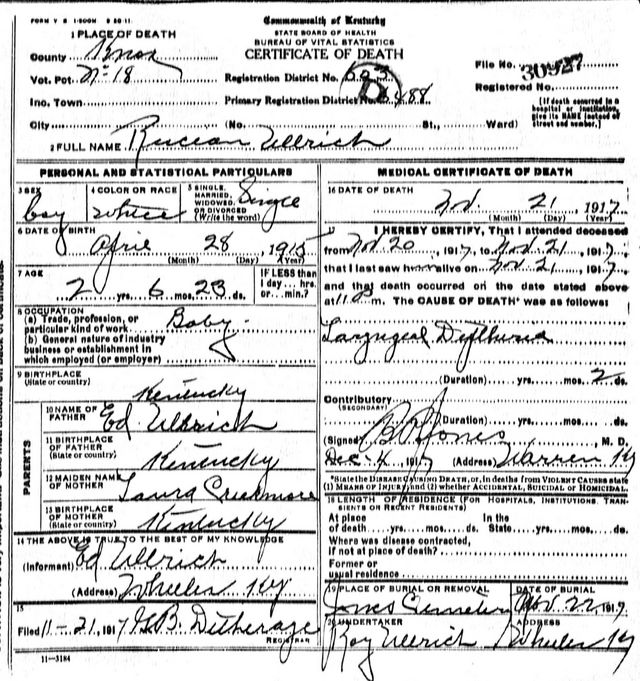 FORM V S 1-500M 9 28 11.
Commonwealth of Kentucky
STATE BOARD OF HEALTH
BUREAU OF VITAL STATISTICS
CERTIFICATE OF DEATH
1 PLACE OF DEATH
County Knox
Vot. Pct. No 18
Inc. Town
City
File No. 30927
Registered No.
Registration District No.
Primary Registration District No. 5488
(No. St., Ward)
[If death occurred in a hospital or institution, give its NAME instead of street and number.]
2 FULL NAME Ullrich
PERSONAL AND STATISTICAL PARTICULARS
3 SEX
boy
4 COLOR OR RACE
white
5 SINGLE, MARRIED, WIDOWED, OR DIVORCED (Write the word) Single
6 DATE OF BIRTH
April 28 1915
(Month) (Day) (Year)
7 AGE
2 yrs. 6 mos. 23 ds.
IF LESS than 1 day... hrs. or min.?
8 OCCUPATION
(a) Trade, profession, or particular kind of work Baby
(b) General nature of industry business or establishment in which employed (or employer)
9 BIRTHPLACE
(State or country)
Kentucky
PARENTS
10 NAME OF FATHER Ed Ullrich
11 BIRTHPLACE OF FATHER (State or country) Kentucky
12 MAIDEN NAME OF MOTHER Laura Creekmore
13 BIRTHPLACE OF MOTHER (State or country) Kentucky
14 THE ABOVE IS TRUE TO THE BEST OF MY KNOWLEDGE
(Informant) Ed Ullrich
(Address) Wheeler Ky
15
Filed 11-21, 1917 G.B. Ditherage
REGISTRAR
11-3184
MEDICAL CERTIFICATE OF DEATH
16 DATE OF DEATH
Nov. 21 1917
(Month) (Day) (Year)
I HEREBY CERTIFY, That I attended deceased
from Nov 20 1917, to Nov 21, 1917,
that I last saw him alive on Nov. 21, 1917
and that death occurred on the date stated above
at 11 m. The CAUSE OF DEATH* was as follows:
Laryngeal Diptheria
(Duration) yrs. mos. 2 ds.
Contributory
(SECONDARY)
(Duration) yrs. mos. ds.
(Signed) Jones, M. D.
Dec 4, 1917 (Address) Warren Ky
*State the DISEASE CAUSING DEATH, or, in deaths from VIOLENT CAUSES state (1) MEANS OF INJURY and (2) whether ACCIDENTAL, SUICIDAL OR HOMICIDAL.
18 LENGTH OF RESIDENCE (FOR HOSPITALS, INSTITUTIONS, TRANSIENTS OR RECENT RESIDENTS)
At place of death yrs. mos. ds. In the State yrs. mos. ds.
Where was disease contracted, if not at place of death?
Former or usual residence
19 PLACE OF BURIAL OR REMOVAL
Jones Cemetery
DATE OF BURIAL
Nov. 22 1917
20 UNDERTAKER
Roy Ullrich
ADDRESS
Wheeler Ky